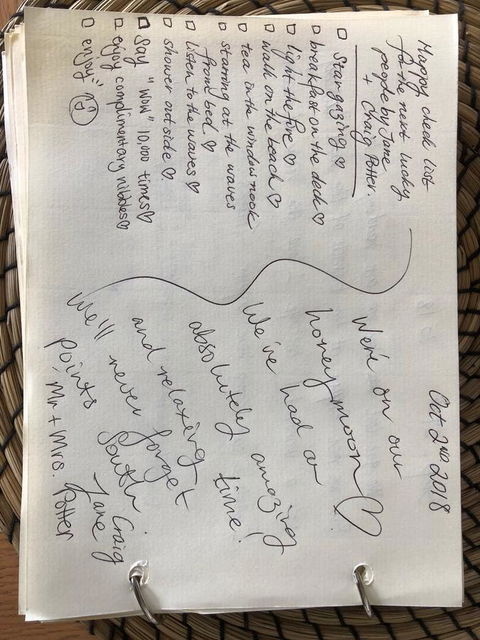 Happy check list
for the next lucky
people by Jane
+ Craig Potter.
Star gazing ♡
breakfast on the deck ♡
light the fire ♡
walk on the beach ♡
tea in the window nook
starring at the waves
from bed. ♡
listen to the waves ♡
shower outside ♡
Say "WOW" 10,000 times ♡
enjoy complimentary nibbles ♡
enjoy!
Oct 2nd 2018
We're on our
honeymoon ♡
We've had a
absolutely amazing
and relaxing time!
We'll never forget
South
points. Jane Craig
Mr + Mrs. Potter